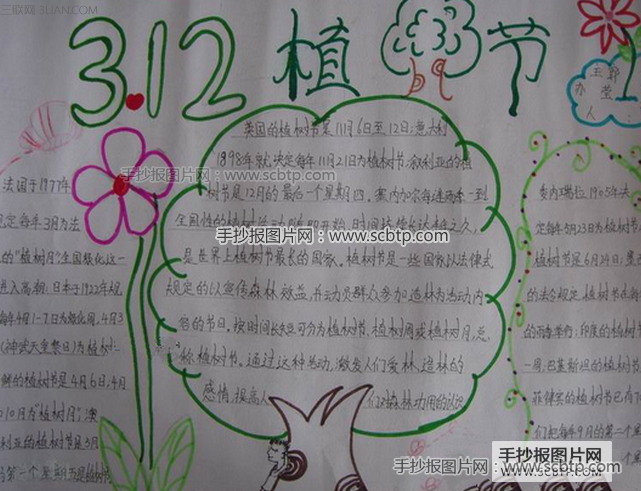 三联网 3LIAN.COM
3.12 植 节
办 人
王 郭
手抄报图片网:www.scbtp.com
英国的植树节是11月6日至12日;意大利
1898年就决定每年11月21日为植树节;叙利亚的植
手抄报图片网:www.scbtp.com
树节是12月的最后一个星期四。塞内加尔每逢雨季一到
全国性的植树
手抄报图片网:www.scbtp.com
是世界上植树节最长的国家。植树节是一些国家以法律式
规定的以宣传森林效益,并动员群众参加造林为活动内
容的节日。按时间长短可分为植树节,植树周或植树月,总
称植树节。通过这种活动,激发人们爱林、造林的
感情,提高人 们对森林功用的认识
法国于1977年
规定每年3月为法
的“植树月”全国绿化这一
进入高潮;日本于1922年规
每年4月1-7日为绿化周,4月3
(神武天皇祭日)为植树
鲜的植树节是4月6日,4月
10月为“植树月”;澳
利亚的植树节是5月
第一个星期五是植树
委内瑞拉1905年
定每年5月23日为植树
植树节是6月24日;墨西
的法令规定,植树节在
的雨季举行;印度的植树节
一周;巴基斯坦的植树节
菲律宾的植树节已有
们把每年9月的第二个星
手抄报图片网
www.scbtp.com
手抄报图片网:www.scbtp.com